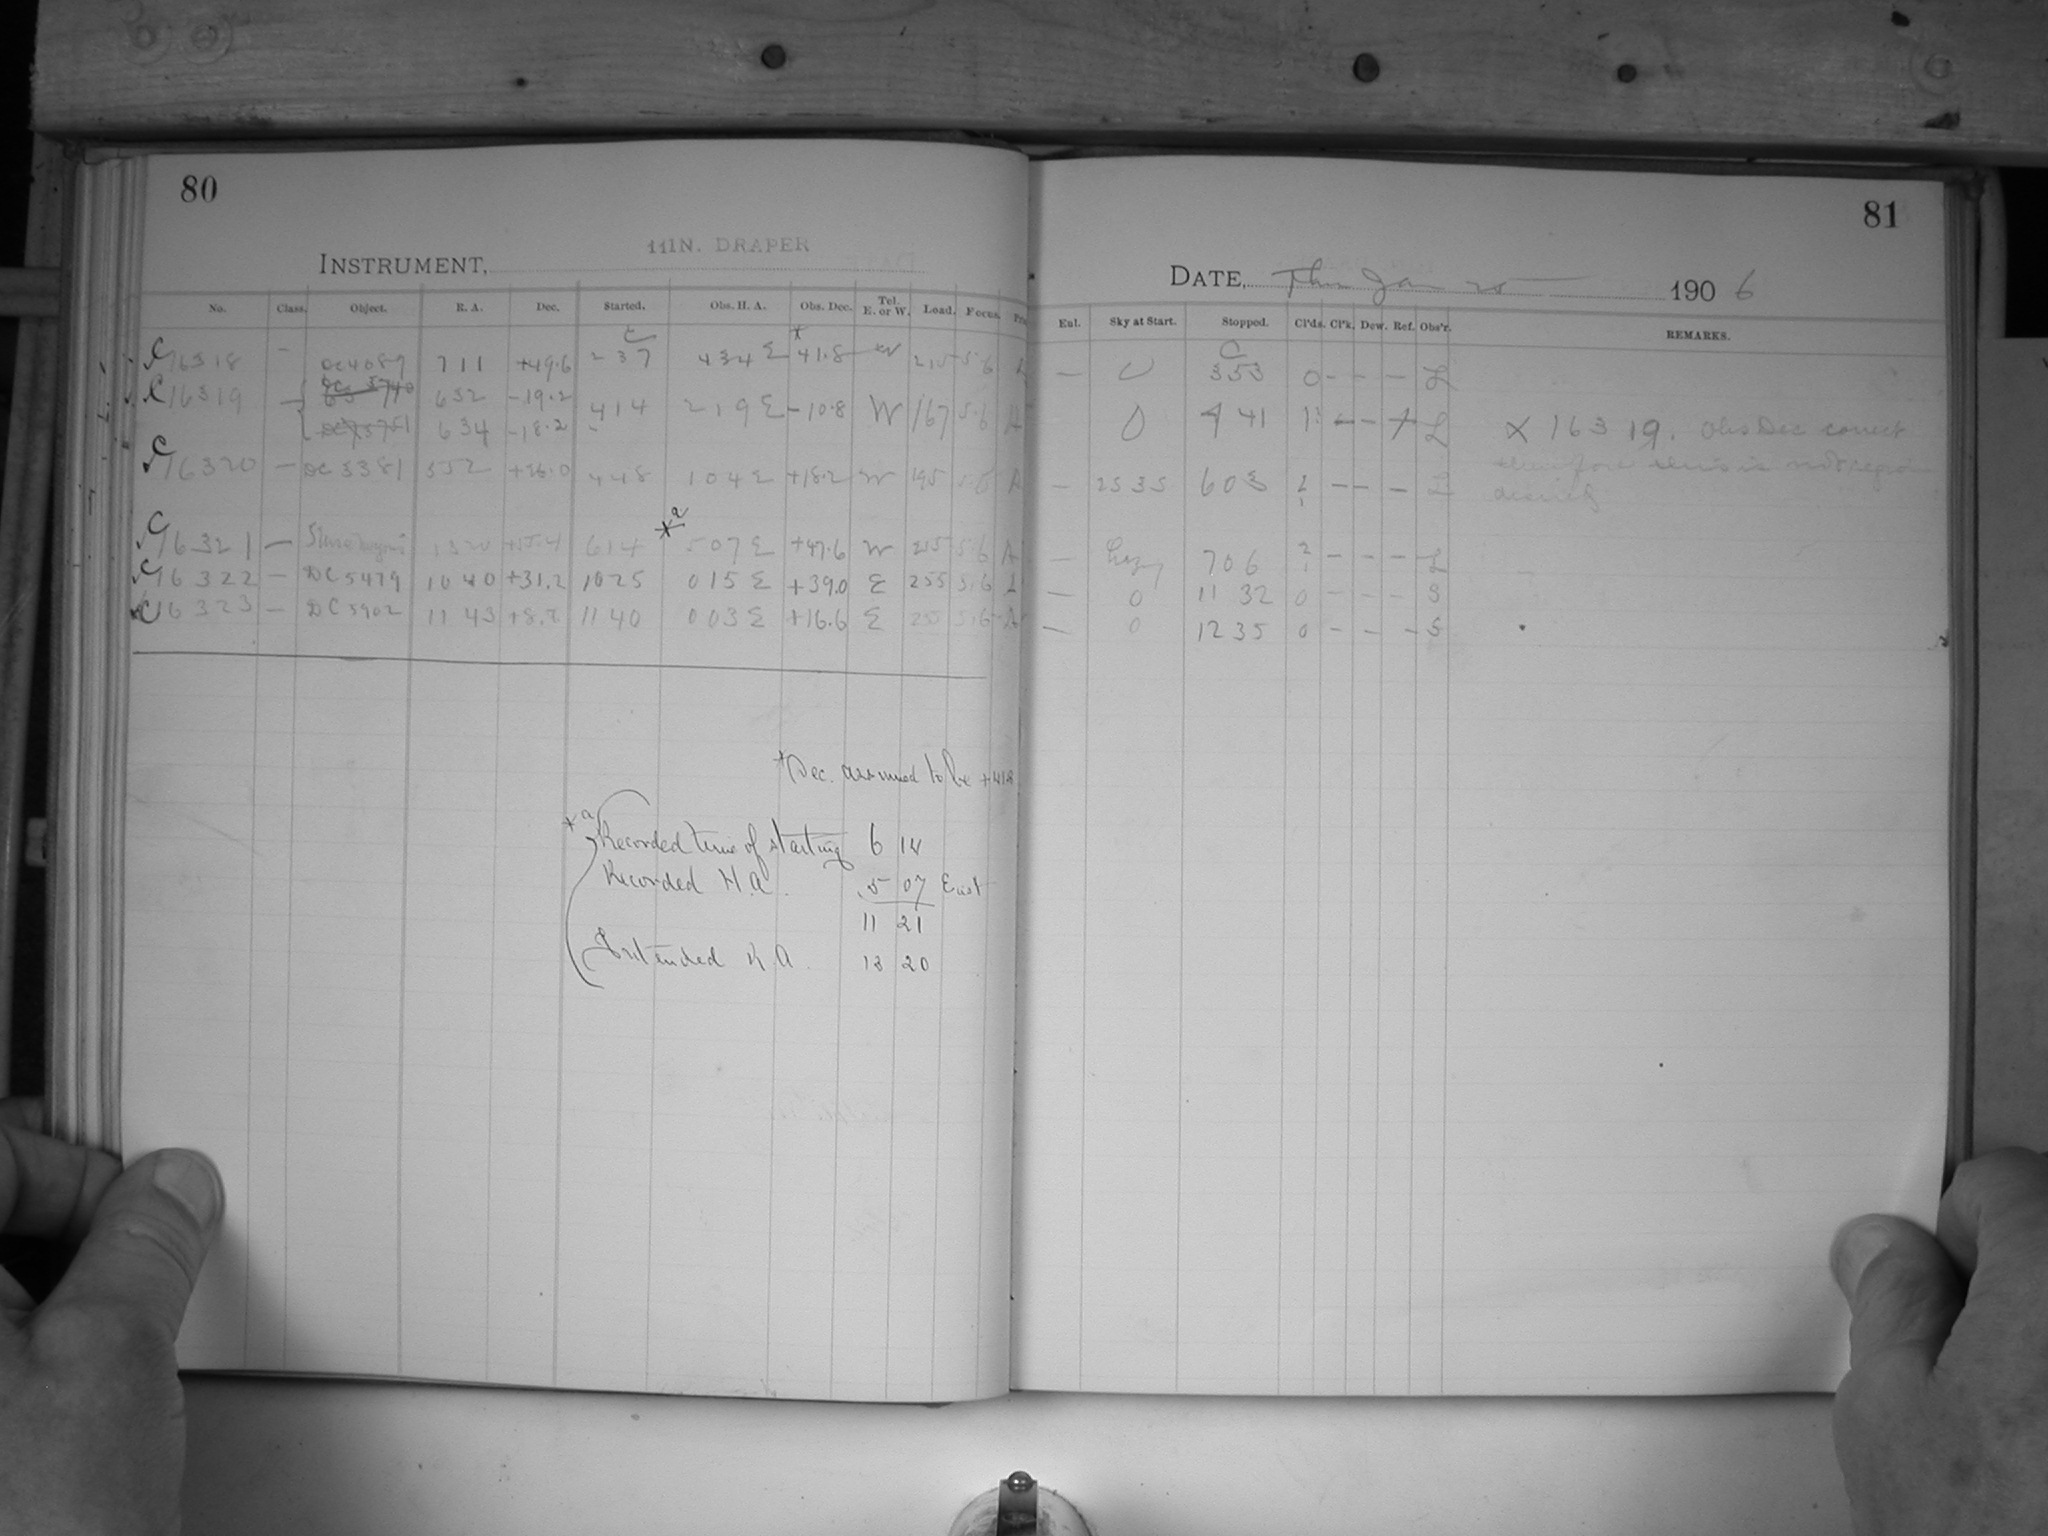 80
INSTRUMENT, 11IN. DRAPER
No. Class. Object. R. A. Dec. Started. Obs. H. A. Obs. Dec. Tel. E. or W. Load. Focus.
C
C16318 - DC4089 711 +49.6 237 434 E * +41.8 W 215 5.6
C16319 - DC 5740 652 -19.2 414 219 E -10.8 W 167 5.6 A
DC 5751 634 -18.2
C16320 - DC 3381 552 +26.0 448 104 E +18.2 W 195 5.6 A
*a
C16321 - 1320 +55.4 614 507 E +47.6 W 215 5.6 A
C16322 - DC 5479 1040 +31.2 1025 015 E +39.0 E 255 5.6
C16323 - DC 5902 11 43 +8.7 1140 003 E +16.6 E 255 5.6 A
*Dec. assumed to be +41.8
*a Recorded time of starting 6 14
Recorded H.A. 5 07 East
11 21
Intended R.A. 13 20
81
DATE, Thu Jan 25 1906
Eul. Sky at Start. Stopped. Cl'ds. Cl'k. Dew. Ref. Obs'r. REMARKS.
C
- 0 353 0 - - - L
0 4 41 1 - - - L X 16319. Obs Dec correct
therefore this is not region
desired
- 2535 603 2 1 - - - L
- Hazy 706 2 1 - - - L
- 0 11 32 0 - - - S
- 0 1235 0 - - - S